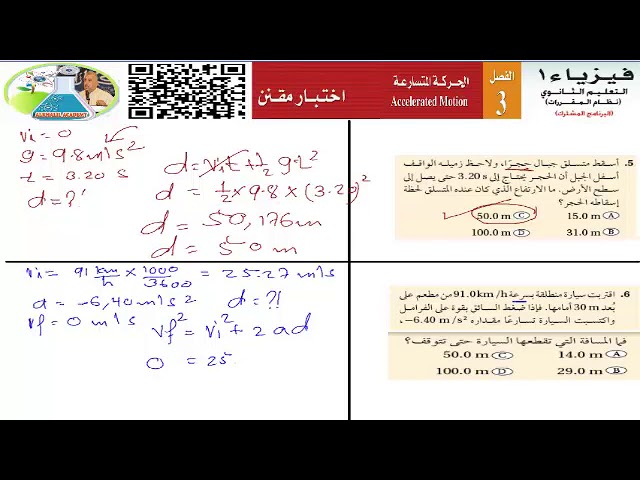 فيزياء ١
التعليم الثانوي
(نظام المقررات)
(البرنامج المشترك)
الفصل
3
الحركة المتسارعة
Accelerated Motion
اختبار مقنن
vi = 0
g = 9.8 m/s²
t = 3.20 s
d = ?!
d = vit + ½ gt²
d = ½ × 9.8 × (3.20)²
d = 50,176 m
d = 50 m
5. أسقط متسلق جبال حجرًا، ولاحظ زميله الواقف
أسفل الجبل أن الحجر يحتاج إلى 3.20 s حتى يصل إلى
سطح الأرض. ما الارتفاع الذي كان عنده المتسلق لحظة
إسقاطه الحجر؟
15.0 m Ⓐ 50.0 m Ⓒ
31.0 m Ⓑ 100.0 m Ⓓ
vi = 91 km/h × 1000/3600 = 25.27 m/s
a = -6,40 m/s² d = ?!
vf = 0 m/s
vf² = vi² + 2 ad
0 = 25.
6. اقتربت سيارة منطلقة بسرعة 91.0 km/h من مطعم على
بُعد 30 m أمامها. فإذا ضغط السائق بقوة على الفرامل
واكتسبت السيارة تسارعًا مقداره -6.40 m/s²،
فما المسافة التي تقطعها السيارة حتى تتوقف؟
14.0 m Ⓐ 50.0 m Ⓒ
29.0 m Ⓑ 100.0 m Ⓓ